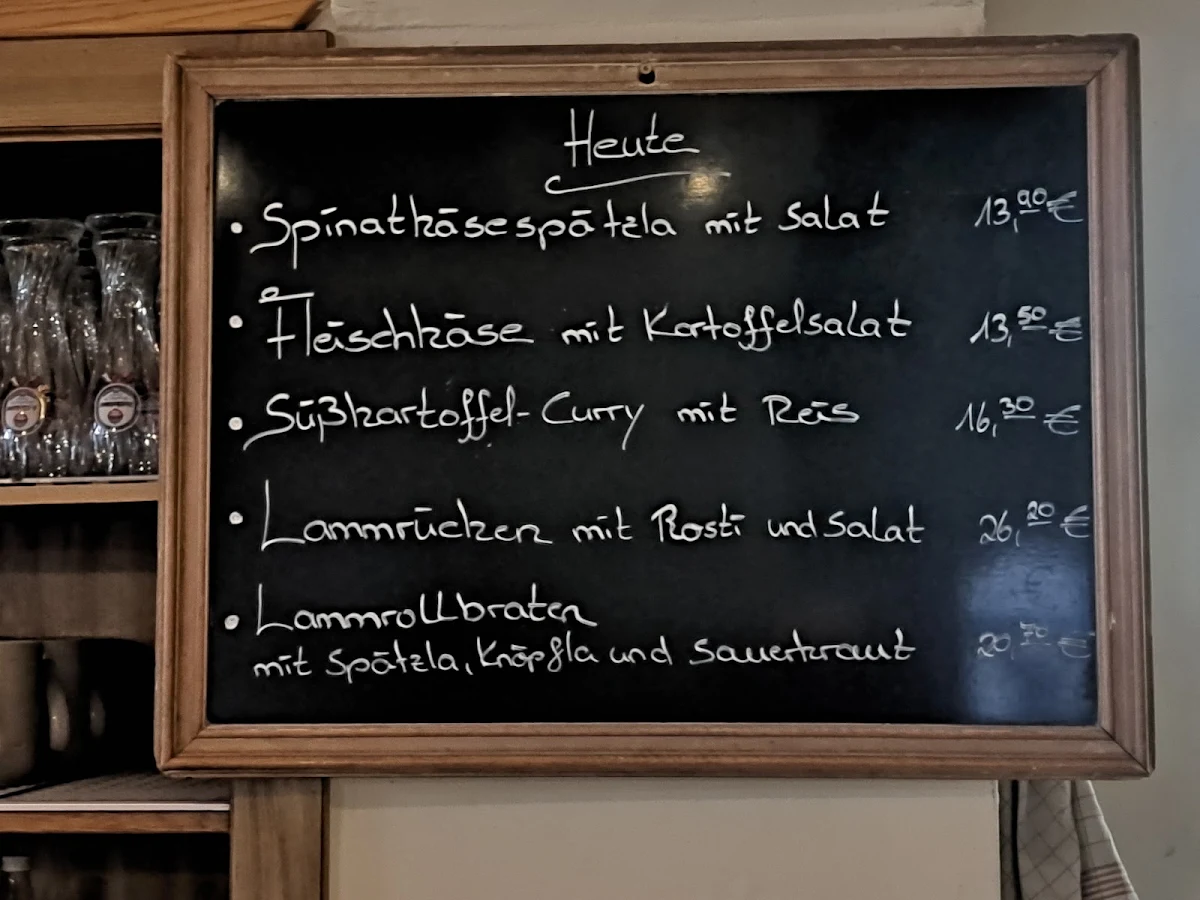 Heute
• Spinatkäsespätzla mit Salat 13,90 €
• Fleischkäse mit Kartoffelsalat 13,50 €
• Süßkartoffel-Curry mit Reis 16,30 €
• Lammrücken mit Rösti und Salat 26,20 €
• Lammrollbraten
mit Spätzla, Knöpfla und Sauerkraut 20,70 €